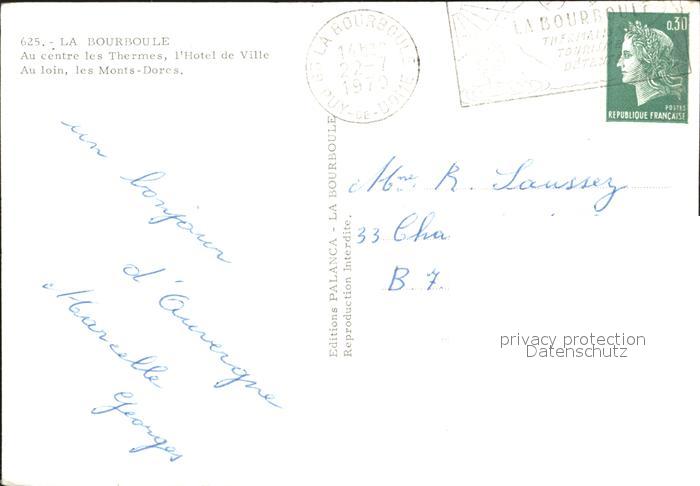 625. - LA BOURBOULE
Au centre les Thermes, l'Hotel de Ville
Au loin, les Monts-Dores.
un bonjour
d'Auvergne
Marcelle
Georges
Editions PALANCA - LA BOURBOULE
Reproduction Interdite.
LA BOURBOULE
22-7
1970
PUY-DE-DOME
LA BOURBOULE
THERMAL
TOURISME
0,30
POSTES
REPUBLIQUE FRANÇAISE
Mme R. Saussez
33 Cha
B 7.
privacy protection
Datenschutz